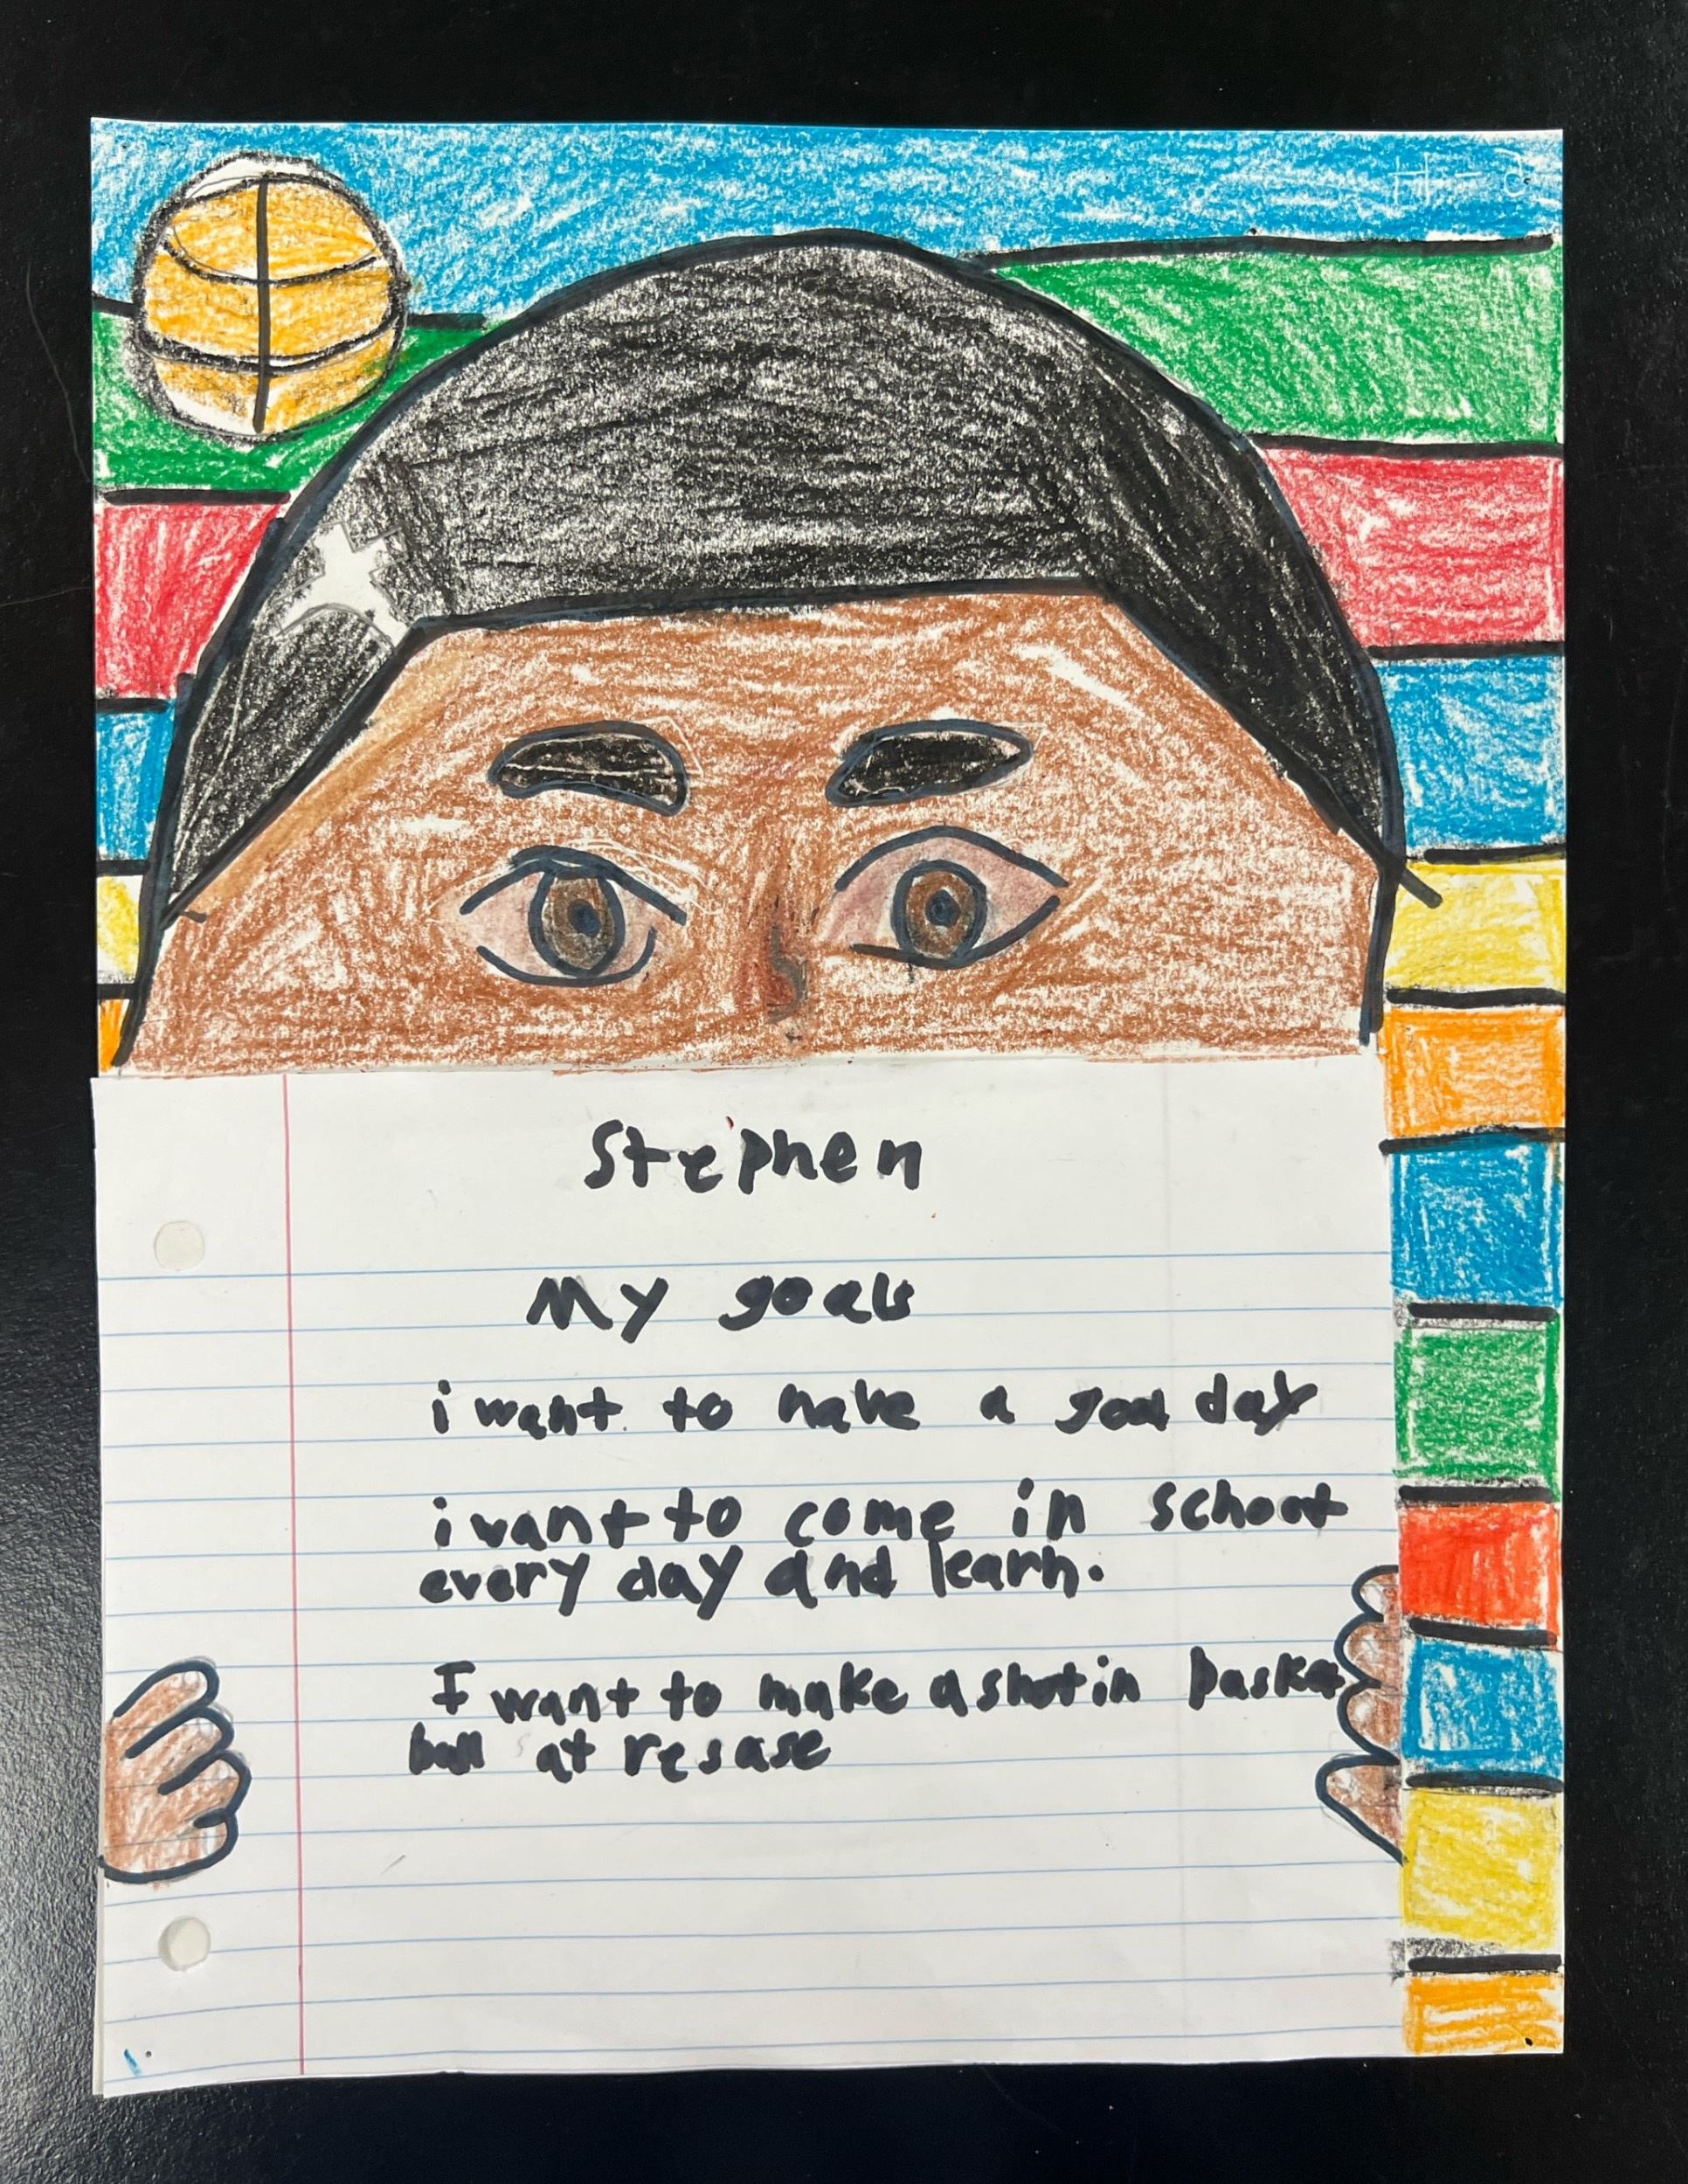 Stephen
My goals
i want to have a good day
i want to come in school
every day and learn.
I want to make a shot in basket
ball at resase